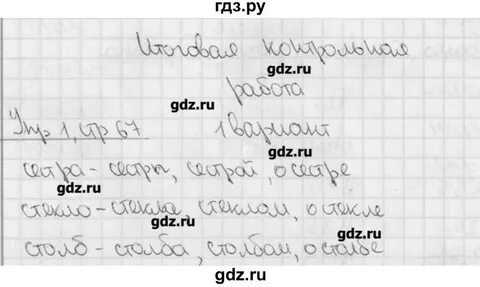 гдз.ру
Итоговая контрольная
gdz.ru
работа
gdz.ru
Упр 1, стр 67 1 Вариант
gdz.ru
сестра - сестры, сестрой, о сестре
gdz.ru
стекло - стекла, стеклом, о стекле
gdz.ru
столб - столба, столбом, о столбе
gdz.ru